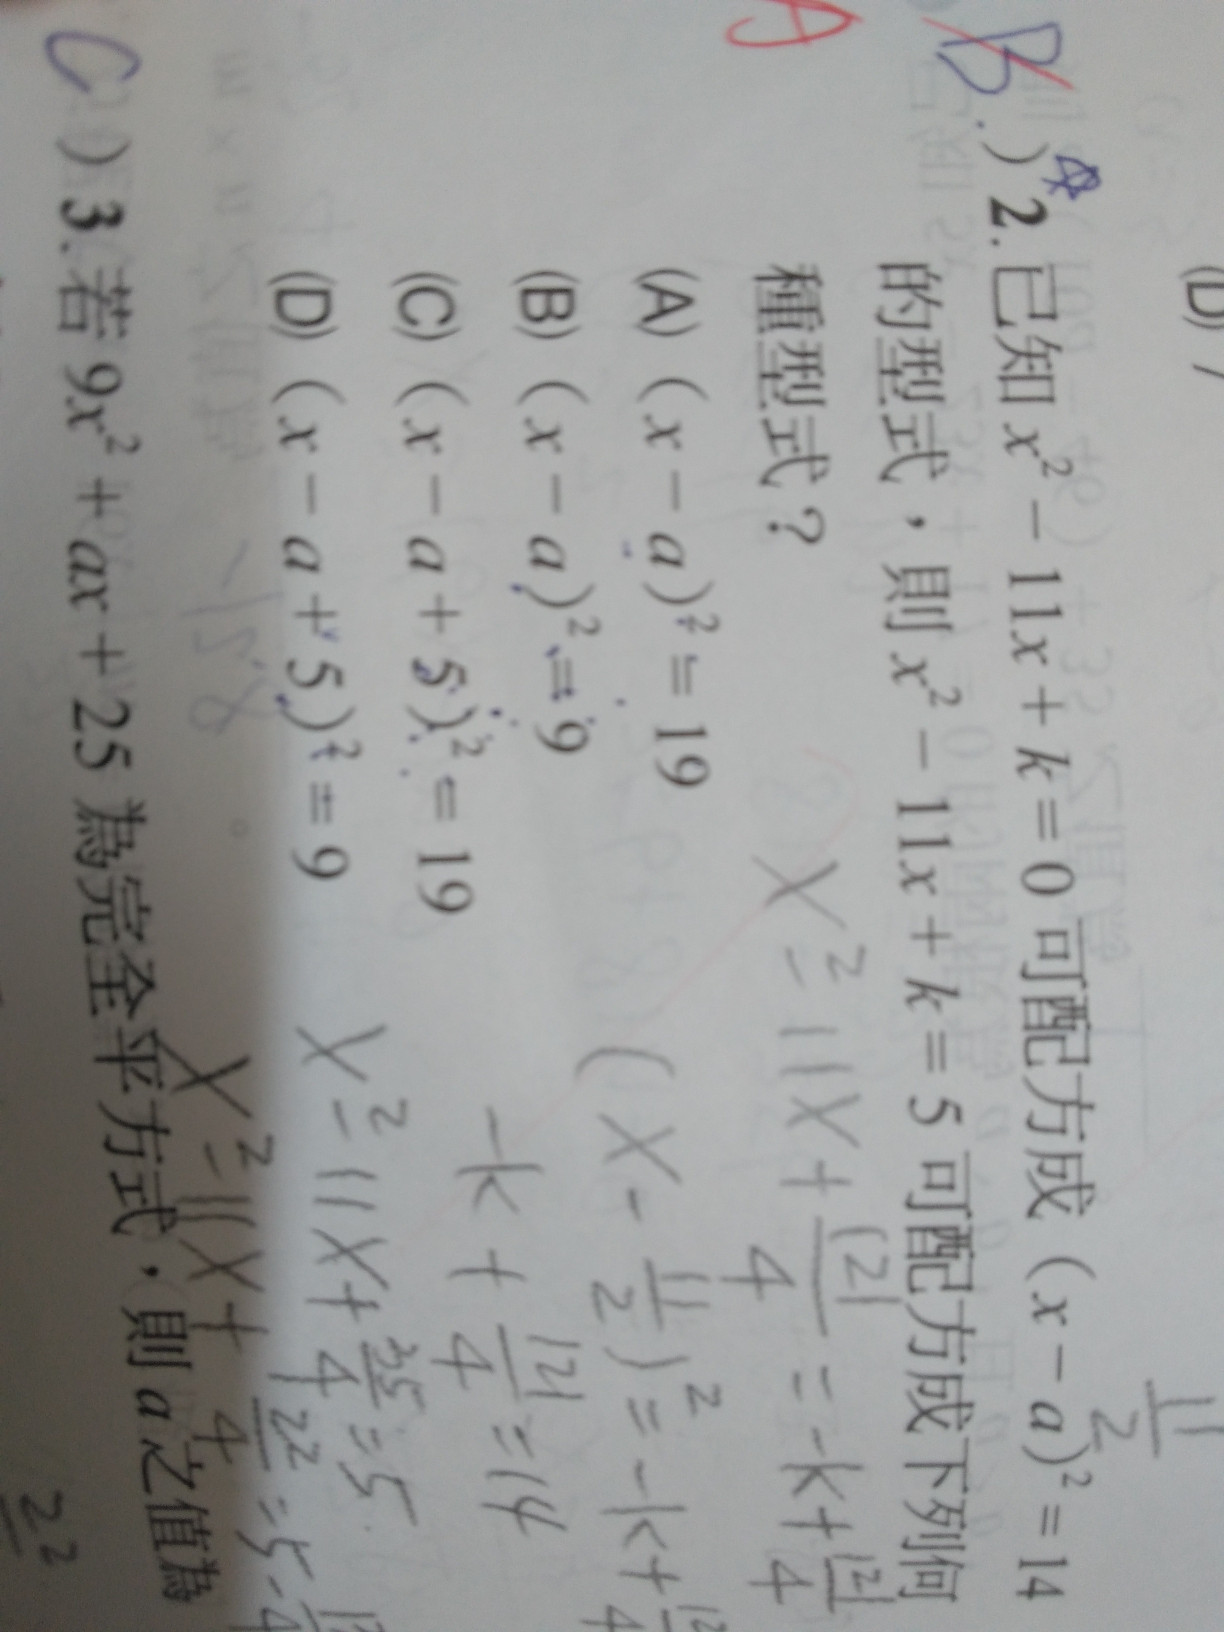 (D) 7
B
A
.)☆2.已知 x² - 11x + k = 0 可配方成 (x - a)² = 14
的型式，則 x² - 11x + k = 5 可配方成下列何
種型式？
(A) (x - a)² = 19
(B) (x - a)² = 9
(C) (x - a + 5)² = 19
(D) (x - a + 5)² = 9
11/2
x² - 11x + 121/4 = -k + 121/4
(x - 11/2)² = -k + 12/4
-k + 121/4 = 14
x² - 11x + 25/4 = 5
C )3.若 9x² + ax + 25 為完全平方式，則 a 之值為